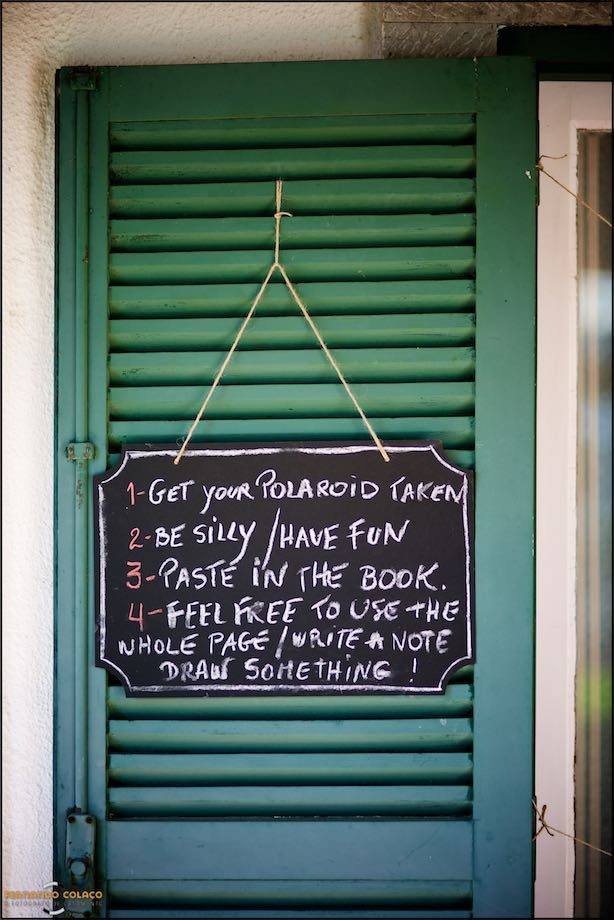 1-GET YOUR POLAROID TAKEN
2-BE SILLY/HAVE FUN
3-PASTE IN THE BOOK.
4-FEEL FREE TO USE THE
WHOLE PAGE/WRITE A NOTE
DRAW SOMETHING!
FERNANDO COLAÇO
O FOTÓGRAFO DE CASAMENTO